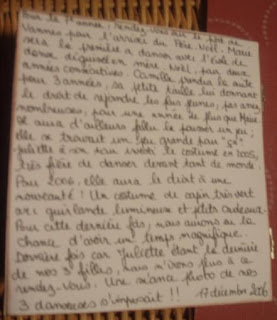 Pour la 1ère année, rendez-vous sur le port de
Vannes pour l'arrivée du Père Noël. Marie
sera la première à danser avec l'école de
danse déguisée en mère Noël, par deux
années consécutives. Camille prendra la suite
pour 3 années, sa petite taille lui donnant
le droit de rejoindre les plus jeunes, peu
nombreuses, pour une année de plus que Marie.
Il aura d'ailleurs fallu la pousser un peu ;
elle se trouvait un peu grande pour "ça".
Juliette à son tour a le costume en 2005,
très fière de danser devant tant de monde.
Pour 2006, elle aura le droit à une
nouveauté ! Un costume de sapin très vert
avec guirlande lumineuse et petits cadeaux.
Pour cette dernière fois, nous aurons eu la
chance d'avoir un temps magnifique.
Dernière fois car Juliette étant la dernière
de nos 3 filles, nous n'irons plus à ce
rendez-vous. Une séance photo de nos
3 danseuses s'imposait !! 17 décembre 2006